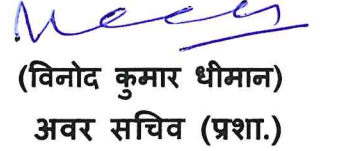 (विनोद कुमार धीमान)
अवर सचिव (प्रशा.)